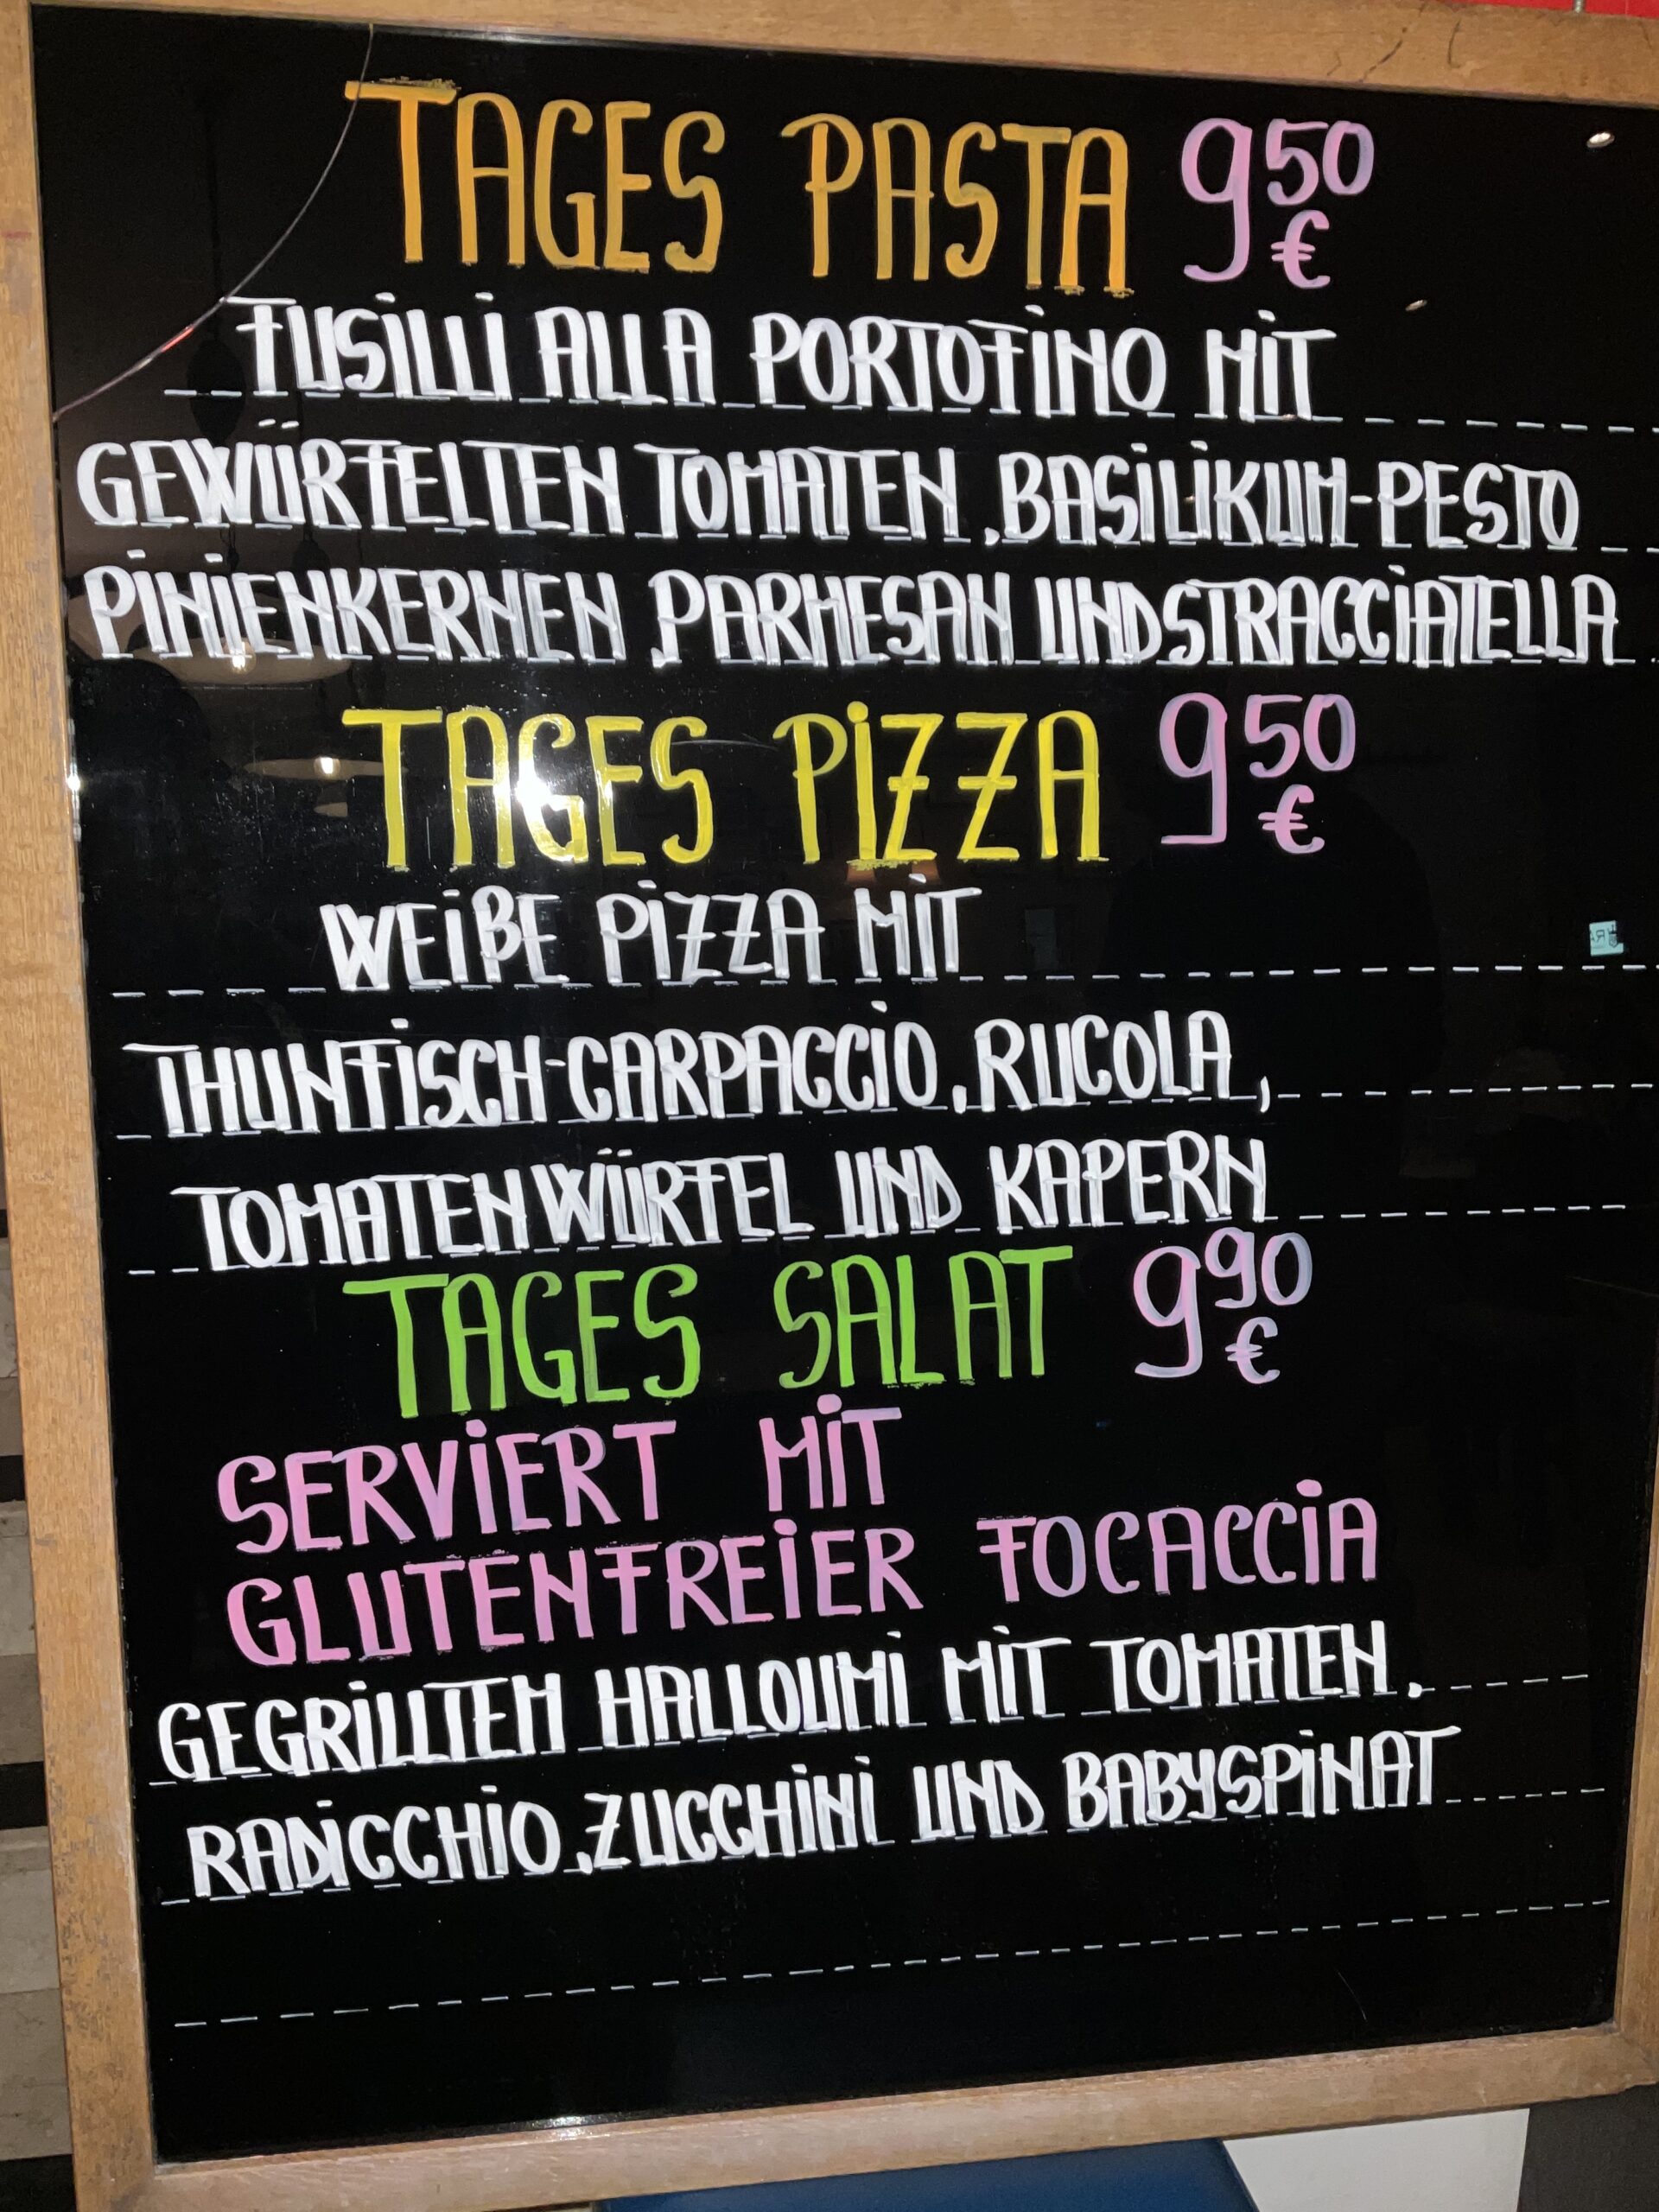 TAGES PASTA 9⁵⁰ €
FUSiLLi ALLA PORTOFiNO MiT
GEWÜRFELTEN TOMATEN, BASiLiKUM-PESTO
PiNiENKERNEN, PARMESAN UND STRACCiATELLA
TAGES PiZZA 9⁵⁰ €
WEißE PiZZA MiT
THUNFiSCH-CARPACCiO, RUCOLA,
TOMATENWÜRFEL UND KAPERN
TAGES SALAT 9⁹⁰ €
SERViERT MiT
GLUTENFREiER FOCACCiA
GEGRiLLTEM HALLOUMi MiT TOMATEN,
RADiCCHiO, ZUCCHiNi UND BABYSPiNAT